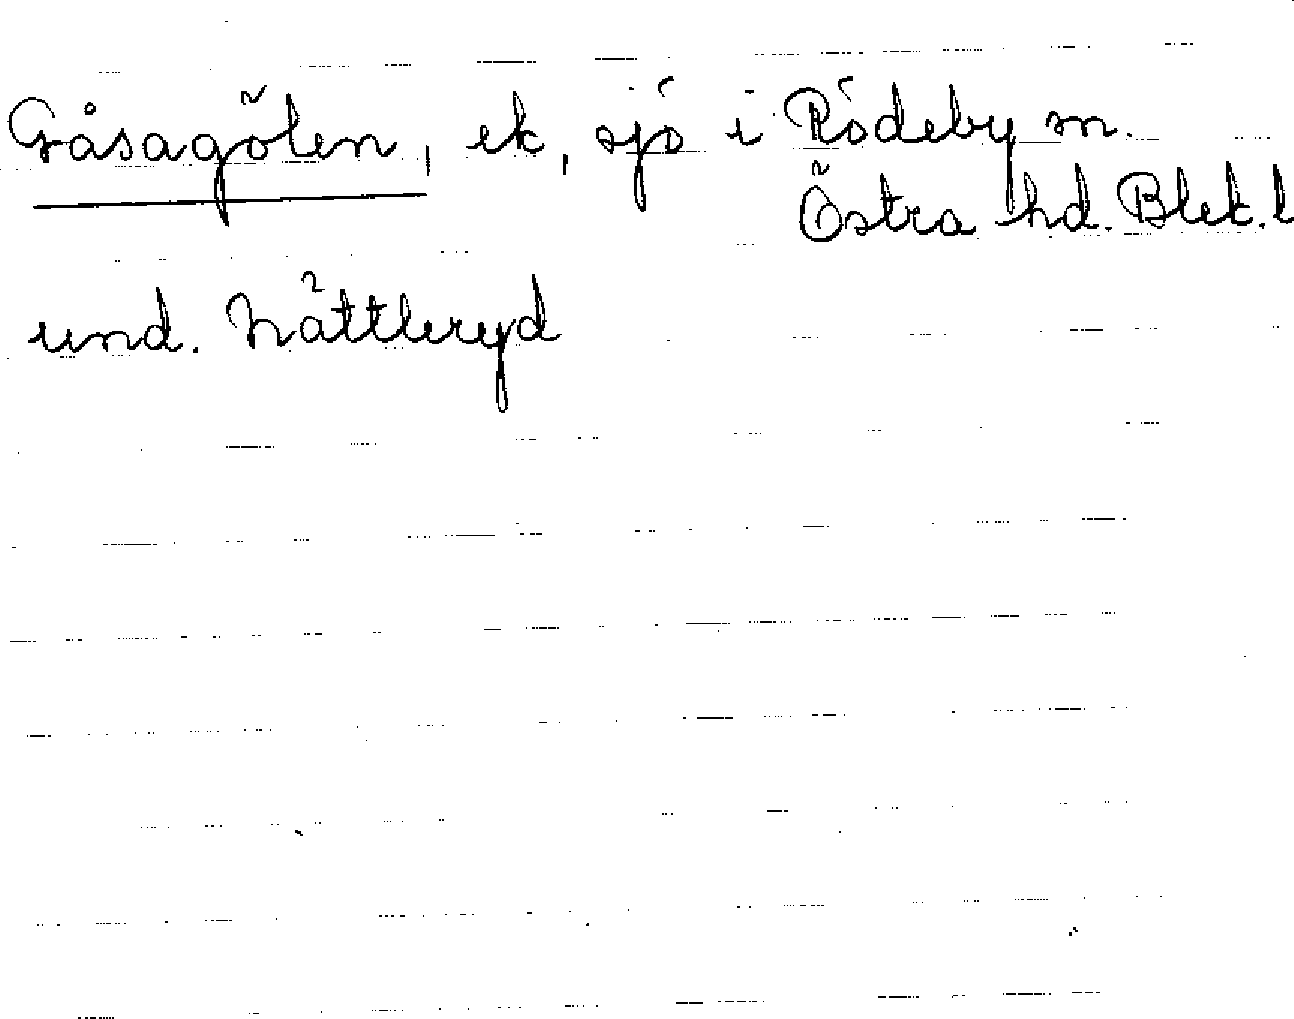 Gåsagölen, ek, sjö i Rödeby sn.
Östra hd. Blek. l
und. Nättleryd